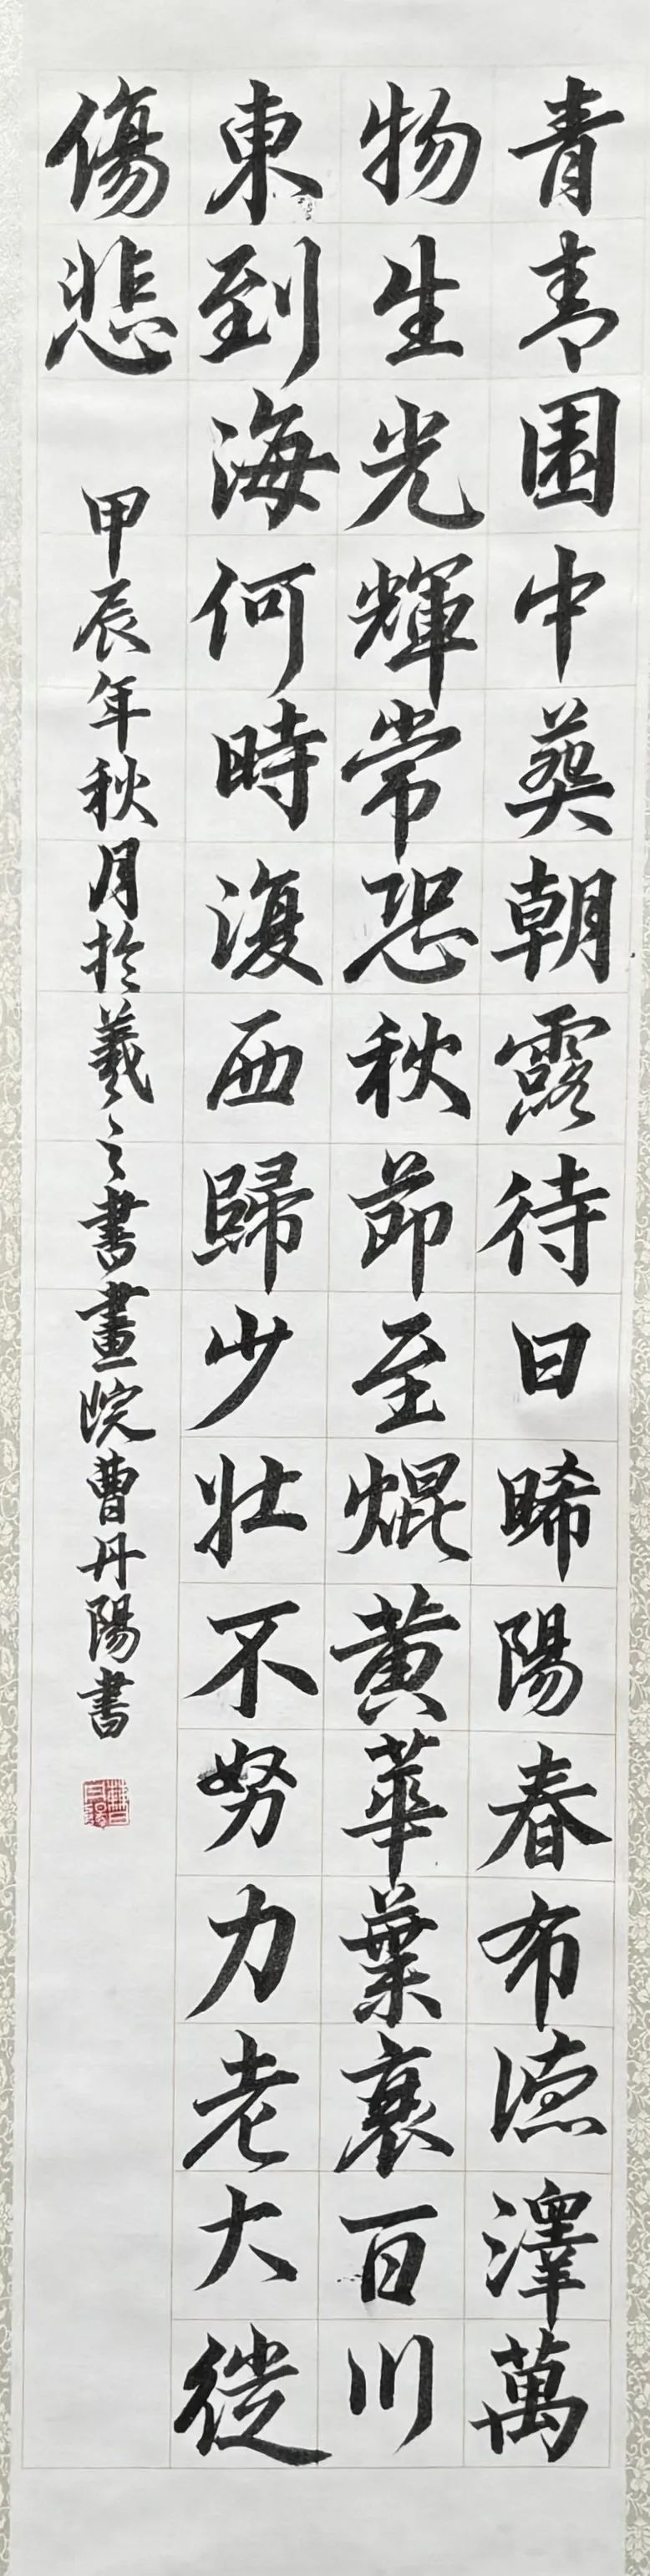 青青園中葵朝露待日晞陽春布德澤萬
物生光輝常恐秋節至焜黄華葉衰百川
東到海何時復西歸少壯不努力老大徒
傷悲
甲辰年秋月於羲之書畫院曹丹陽書